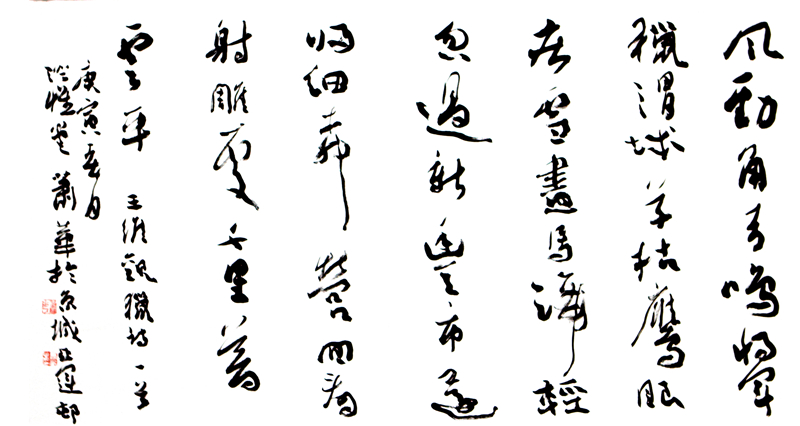 風勁角弓鳴將軍
獵渭城草枯鷹眼
疾雪盡馬蹄輕
忽過新豐市還
歸細柳營回看
射雕處千里暮
雲平 王維觀獵詩一首
庚寅春月
堂 蕭華於京城亞運邨